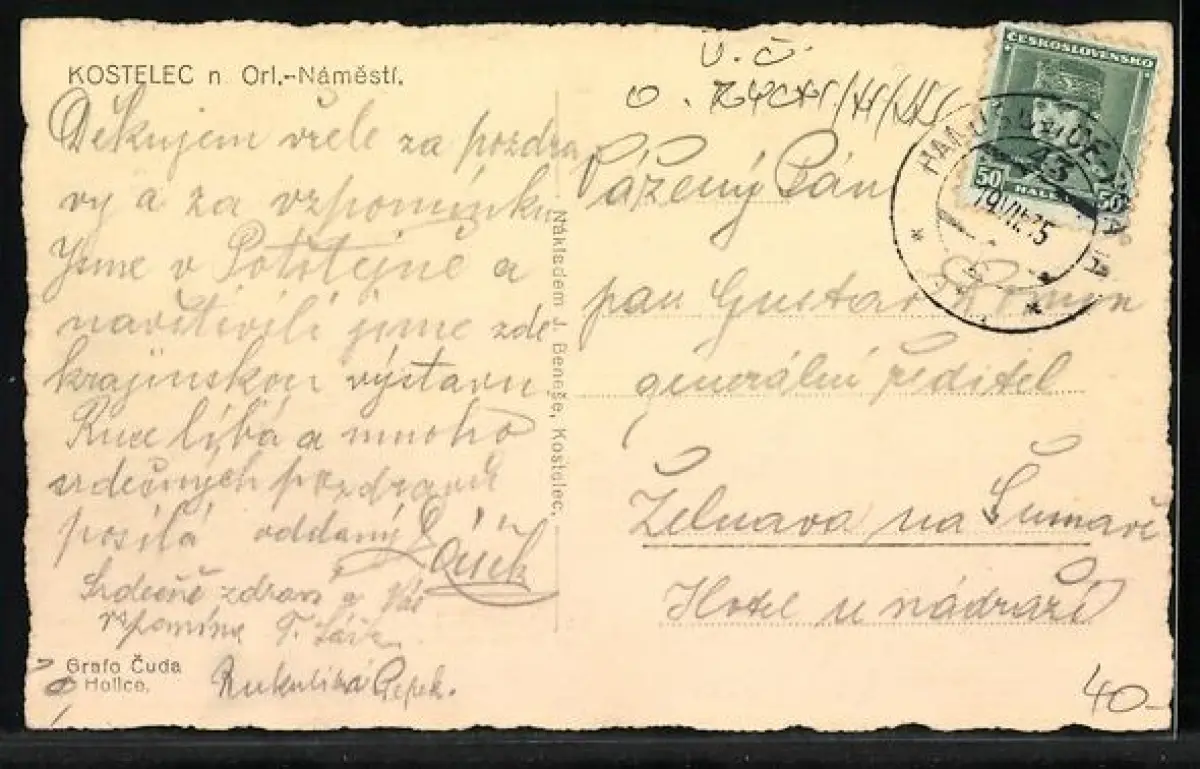 KOSTELEC n. Orl.-Náměstí.
Děkujem vřele za pozdra
vy a za vzpomínku
Jsme v Potštejně a
navštívili jsme zde
krajinskou výstavu
Ruce líbá a mnoho
srdečných pozdravů
posílá oddaný
Srdečně zdraví a Vás
vzpomíná T.
Grafo Čuda
Holice.
Nákladem J. Beneše, Kostelec.
U. Č.
ČESKOSLOVENSKO
50 HAL 50
43
19.VII.35
Vážený Pán
pan Gustav
generální ředitel
Želnava na Šumavě
Hotel u nádraží
40-